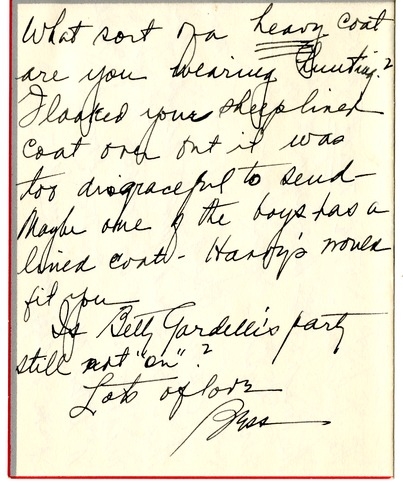 What sort of a heavy coat
are you wearing hunting?
I looked your sheeplined
coat over but it was
too disgraceful to send -
Maybe one of the boys has a
lined coat - Handy's would
fit you
Is Betty Gardelli's party
still not "on".?
Lots of love
Bess